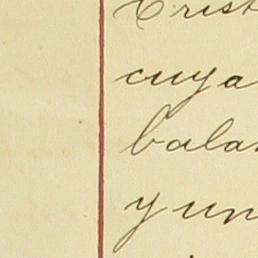 Crist
cuya
balan
y un